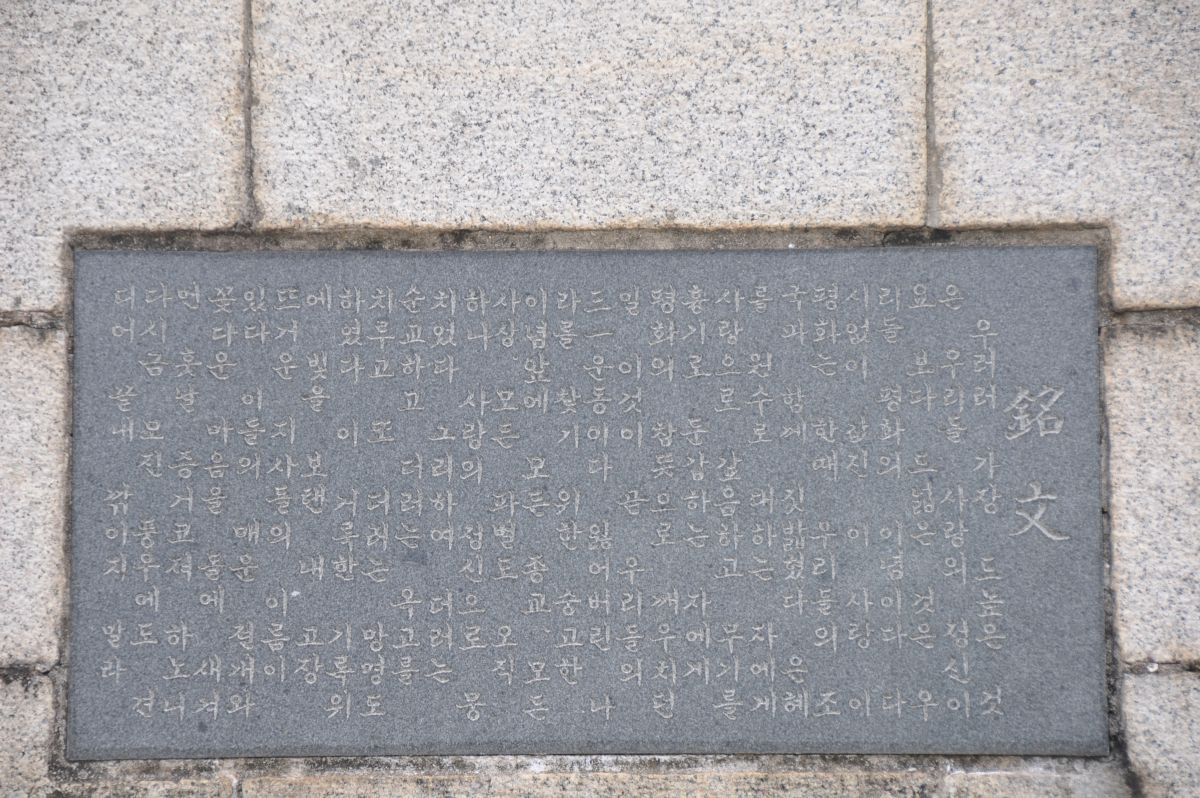 銘文
우러러 가장 드높은 것
은 우리들 사랑의 정신이
요 보다 드넓은 것은 우
리들 평화의 이념이다 다
시 없이 값진 이 사랑 이
평화는 한때 우리들의 조
국과 함께 짓밟혔다 은혜
를 원수로 대하는 자에게
사랑으로 갚음하고 무기를
흉기로 둔갑하는 자에게
평화의 참뜻으로 깨우치던
일 이것이 곧 우리들의
三一운동이다 잃어버린 나
라를 찾기 위한 숭고한
이념앞에 모든 종교 모든
사상 모든 파벌도 오직
하나 사랑의 정신으로 뭉
치었다 그리하여 더러는
순고하고 더러는 옥고를
치루고 또 더러는 망명도
하였다 이 거룩한 기록위
에 빛을 보탠 내 고장
뜨거운 지사들의 이름이
있다 이들의 매운 절개와
꽃다운 마음을 돌에 새겨
먼 훗날 증거코져 하노니
다시금 모진 풍우에도 견
디어 끝내 깎이지 말라